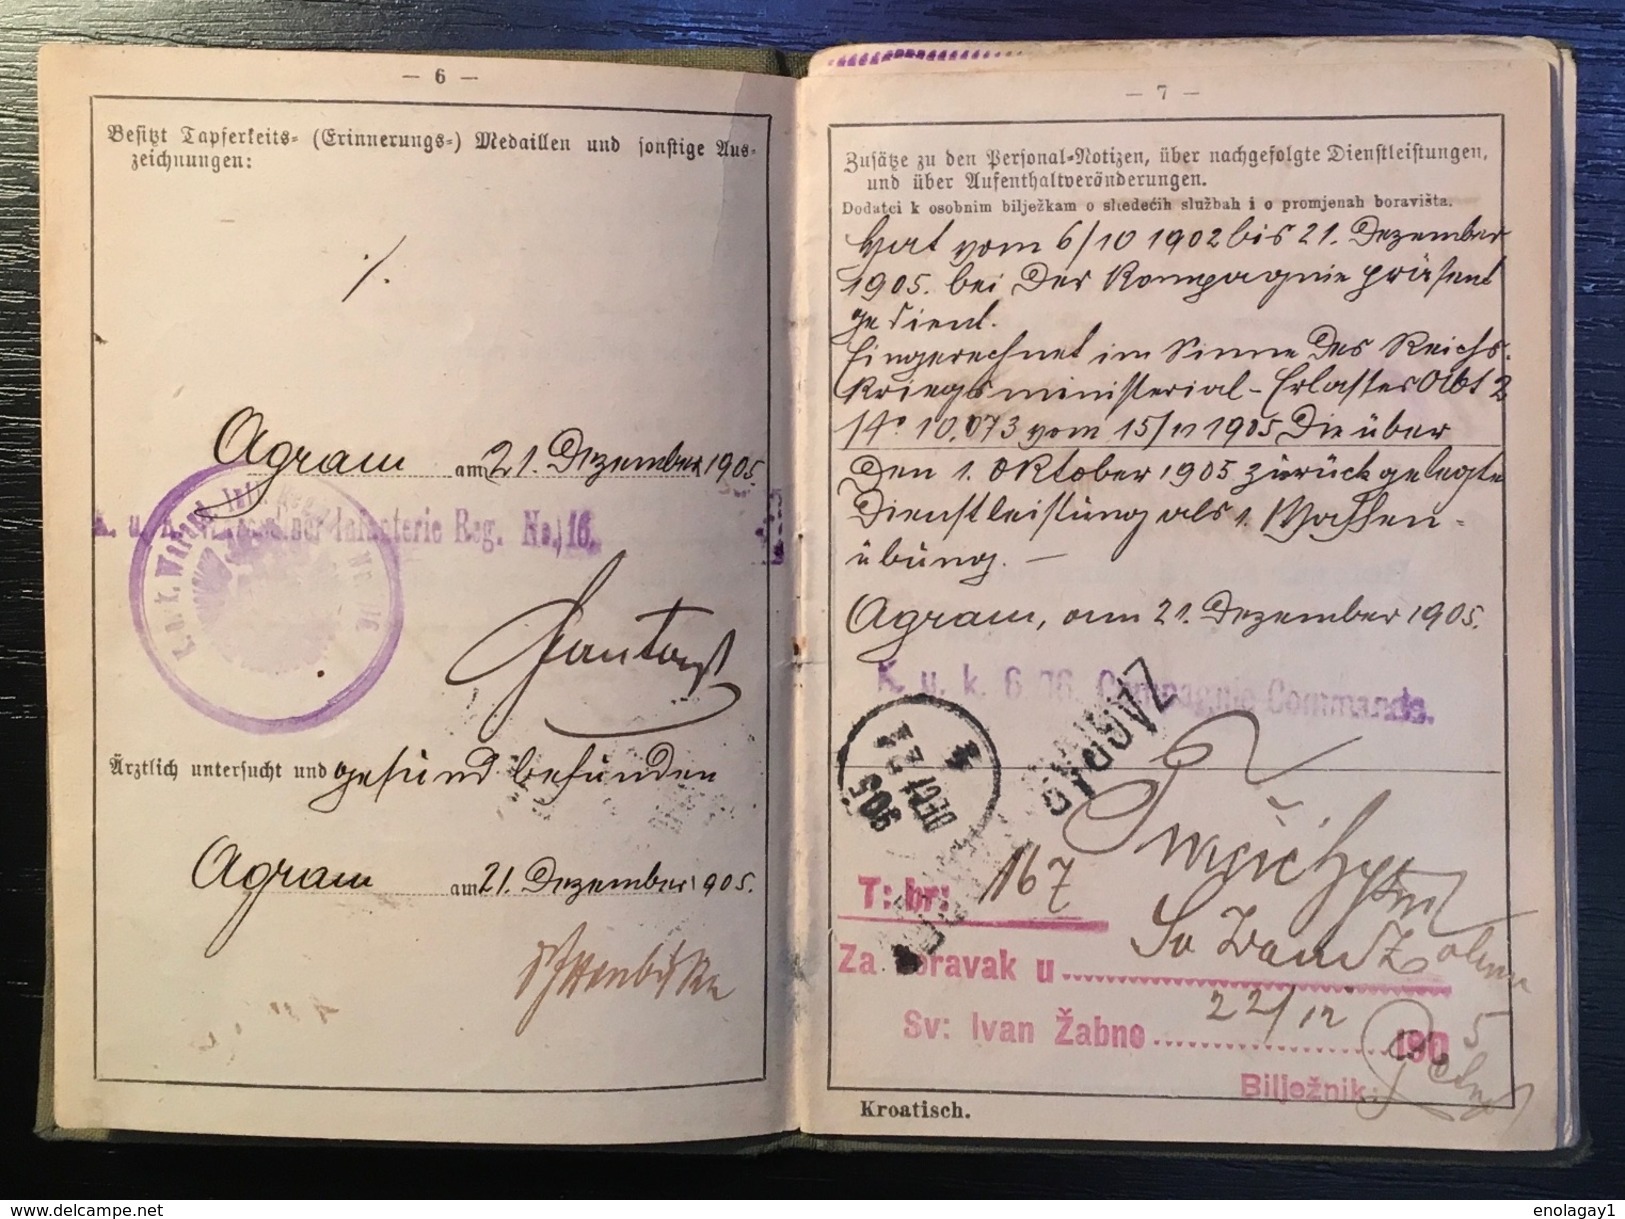 — 6 —
Besitzt Tapferkeits- (Erinnerungs-) Medaillen und sonstige Aus-
zeichnungen:
./.
Agram am 21. Dezember 1905.
Infanterie Reg. No. 16.
Ärztlich untersucht und gesund befunden
Agram am 21. Dezember 1905.
— 7 —
Zusätze zu den Personal-Notizen, über nachgefolgte Dienstleistungen,
und über Aufenthaltveränderungen.
Dodatci k osobnim bilježkam o sljedećih službah i o promjenah boravišta.
Hat vom 6/10 1902 bis 21. Dezember
1905. bei der Kompagnie präsent
gedient.
Eingerechnet im Sinne des Reichs-
kriegsministerial-Erlasses Abt 2
No 10.073 vom 15/11 1905 die über
den 1. Oktober 1905 zurückgelegte
Dienstleistung als 1. Waffen-
übung. —
Agram, am 21. Dezember 1905.
K. u. k. Compagnie Commando.
ZAGRAB
905 DEC 21
T: br: 167
Za boravak u
Sv: Ivan Žabno 22/12 1905
Bilježnik:
Kroatisch.
delcampe.net
enolagay1